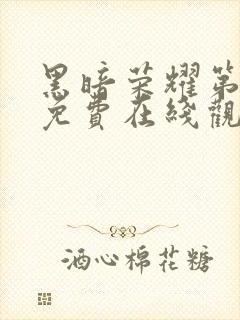 黑暗荣耀第
免費在线觀
酒心棉花糖